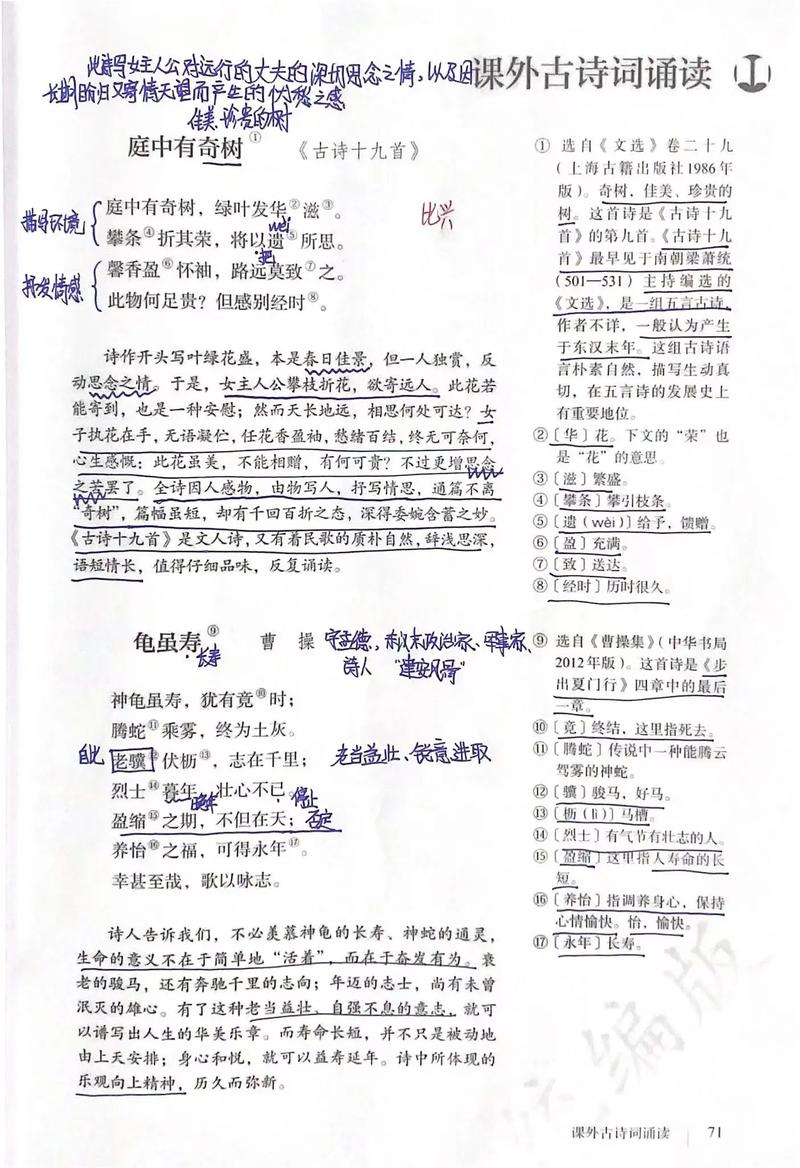 此诗写女主人公对远行的丈夫的深切思念之情，以及因
长期盼归又寄情无望而产生的忧愁之感
课外古诗词诵读
佳美、珍贵的树
庭中有奇树①
《古诗十九首》
描写环境
庭中有奇树，绿叶发华②滋③。
wèi
攀条④折其荣，将以遗⑤所思。
把
抒发情感
馨香盈⑥怀袖，路远莫致⑦之。
此物何足贵？但感别经时⑧。
比兴
诗作开头写叶绿花盛，本是春日佳景，但一人独赏，反
动思念之情。于是，女主人公攀枝折花，欲寄远人。此花若
能寄到，也是一种安慰；然而天长地远，相思何处可达？女
子执花在手，无语凝伫，任花香盈袖，愁绪百结，终无可奈何，
心生感慨：此花虽美，不能相赠，有何可贵？不过更增思念
之苦罢了。全诗因人感物，由物写人，抒写情思，通篇不离
“奇树”，篇幅虽短，却有千回百折之态，深得委婉含蓄之妙。
《古诗十九首》是文人诗，又有着民歌的质朴自然，辞浅思深，
语短情长，值得仔细品味，反复诵读。
① 选自《文选》卷二十九
（上海古籍出版社1986年
版）。奇树，佳美、珍贵的
树。这首诗是《古诗十九
首》的第九首。《古诗十九
首》最早见于南朝梁萧统
（501—531）主持编选的
《文选》，是一组五言古诗，
作者不详，一般认为产生
于东汉末年。这组古诗语
言朴素自然，描写生动真
切，在五言诗的发展史上
有重要地位。
②〔华〕花。下文的“荣”也
是“花”的意思。
③〔滋〕繁盛。
④〔攀条〕攀引枝条。
⑤〔遗（wèi）〕给予，馈赠。
⑥〔盈〕充满。
⑦〔致〕送达。
⑧〔经时〕历时很久。
龟虽寿⑨
曹 操
长寿
字孟德，东汉末政治家、军事家、
诗人 “建安风骨”
神龟虽寿，犹有竟⑩时；
腾蛇⑪乘雾，终为土灰。
自比
老骥⑫伏枥⑬，志在千里；
老当益壮、锐意进取
烈士⑭暮年，壮心不已。
晚年
停止
盈缩⑮之期，不但在天；
否定
养怡⑯之福，可得永年⑰。
幸甚至哉，歌以咏志。
诗人告诉我们，不必羡慕神龟的长寿、神蛇的通灵，
生命的意义不在于简单地“活着”，而在于奋发有为。衰
老的骏马，还有奔驰千里的志向；年迈的志士，尚有未曾
泯灭的雄心。有了这种老当益壮、自强不息的意志，就可
以谱写出人生的华美乐章。而寿命长短，并不只是被动地
由上天安排；身心和悦，就可以益寿延年。诗中所体现的
乐观向上精神，历久而弥新。
⑨ 选自《曹操集》（中华书局
2012年版）。这首诗是《步
出夏门行》四章中的最后
一章。
⑩〔竟〕终结，这里指死去。
⑪〔腾蛇〕传说中一种能腾云
驾雾的神蛇。
⑫〔骥〕骏马，好马。
⑬〔枥（lì）〕马槽。
⑭〔烈士〕有气节有壮志的人。
⑮〔盈缩〕这里指人寿命的长
短。
⑯〔养怡〕指调养身心，保持
心情愉快。怡，愉快。
⑰〔永年〕长寿。
统编版
课外古诗词诵读 71